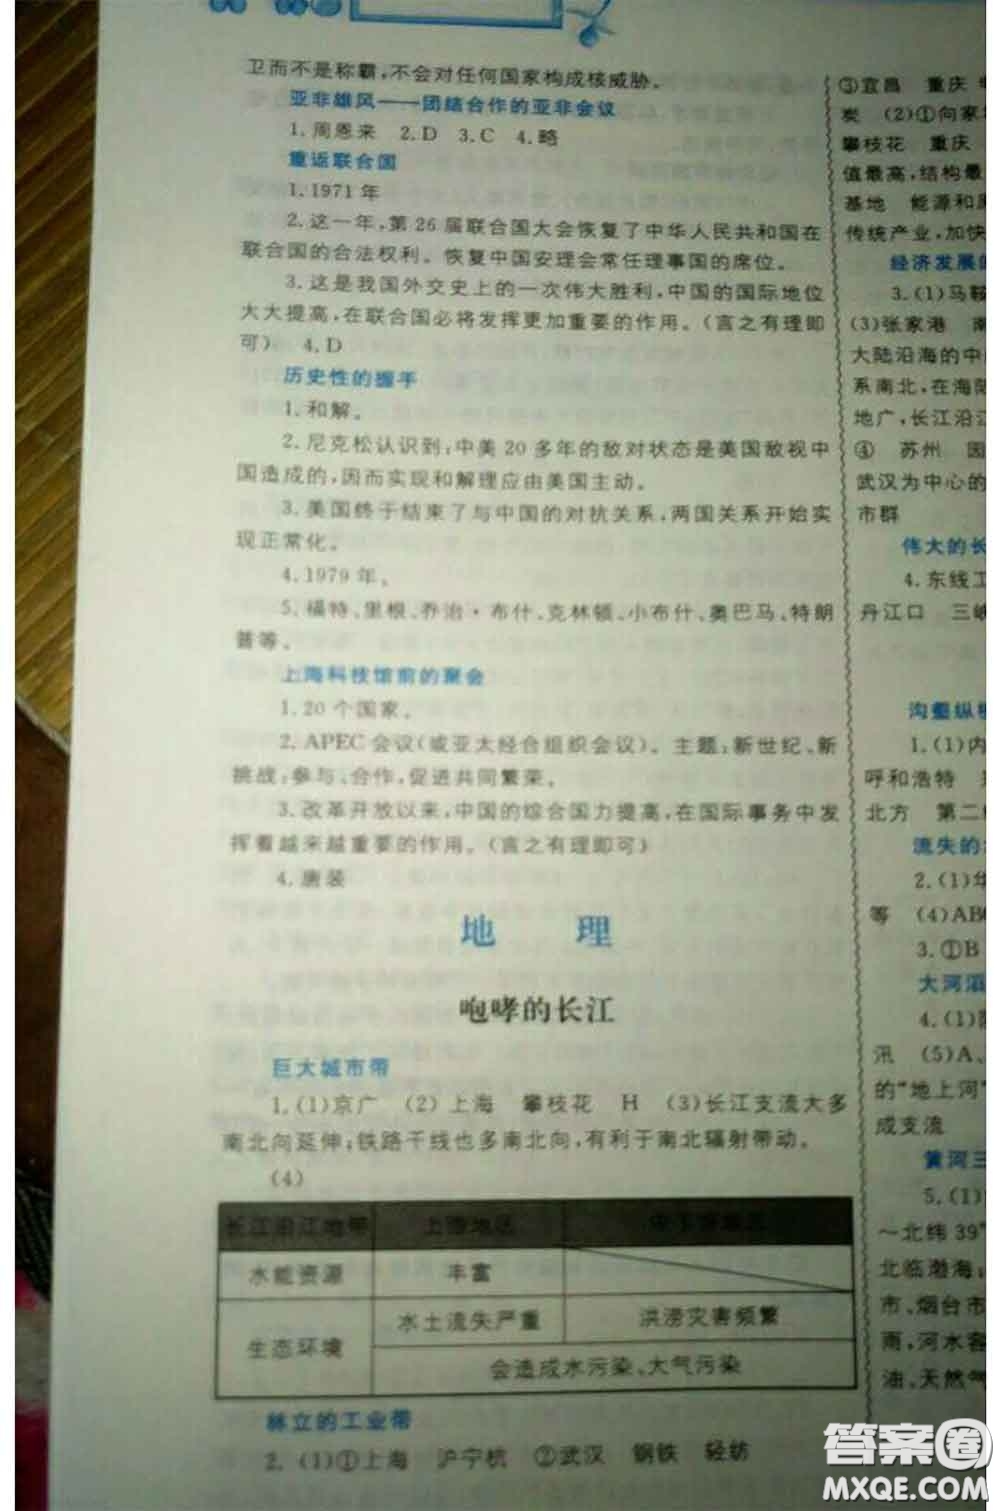 卫而不是称霸,不会对任何国家构成核威胁。
亚非雄风——团结合作的亚非会议
1.周恩来 2.D 3.C 4.略
重返联合国
1.1971年
2.这一年,第26届联合国大会恢复了中华人民共和国在
联合国的合法权利。恢复中国安理会常任理事国的席位。
3.这是我国外交史上的一次伟大胜利,中国的国际地位
大大提高,在联合国必将发挥更加重要的作用。(言之有理即
可) 4.D
历史性的握手
1.和解。
2.尼克松认识到,中美20多年的敌对状态是美国敌视中
国造成的,因而实现和解理应由美国主动。
3.美国终于结束了与中国的对抗关系,两国关系开始实
现正常化。
4.1979年。
5.福特、里根、乔治·布什、克林顿、小布什、奥巴马、特朗
普等。
上海科技馆前的聚会
1.20个国家。
2.APEC会议(或亚太经合组织会议)。主题:新世纪、新
挑战:参与、合作,促进共同繁荣。
3.改革开放以来,中国的综合国力提高,在国际事务中发
挥着越来越重要的作用。(言之有理即可)
4.唐装
地 理
咆哮的长江
巨大城市带
1.(1)京广 (2)上海 攀枝花 H (3)长江支流大多
南北向延伸;铁路干线也多南北向,有利于南北辐射带动。
(4)
长江沿江地带 上游地区
水能资源 丰富
生态环境 水土流失严重 洪涝灾害频繁
会造成水污染、大气污染
林立的工业带
2.(1)①上海 沪宁杭 ②武汉 钢铁 轻纺
③宜昌 重庆
炭 (2)①向家
攀枝花 重庆
值最高,结构最
基地 能源和
传统产业,加快
经济发展的
3.(1)马鞍
(3)张家港 南
大陆沿海的中
系南北,在海陆
地广,长江沿江
④ 苏州 园
武汉为中心的
市群
伟大的长
4.东线工
丹江口 三峡
沟壑纵横
1.(1)内
呼和浩特
北方 第二
流失的
2.(1)华
等 (4)ABC
3.①B
大河滔
4.(1)
汛 (5)A、
的“地上河”
成支流
黄河三
5.(1)
～北纬39°
北临渤海;
市、烟台市
雨,河水容
油、天然气
答案圈
MXQE.COM